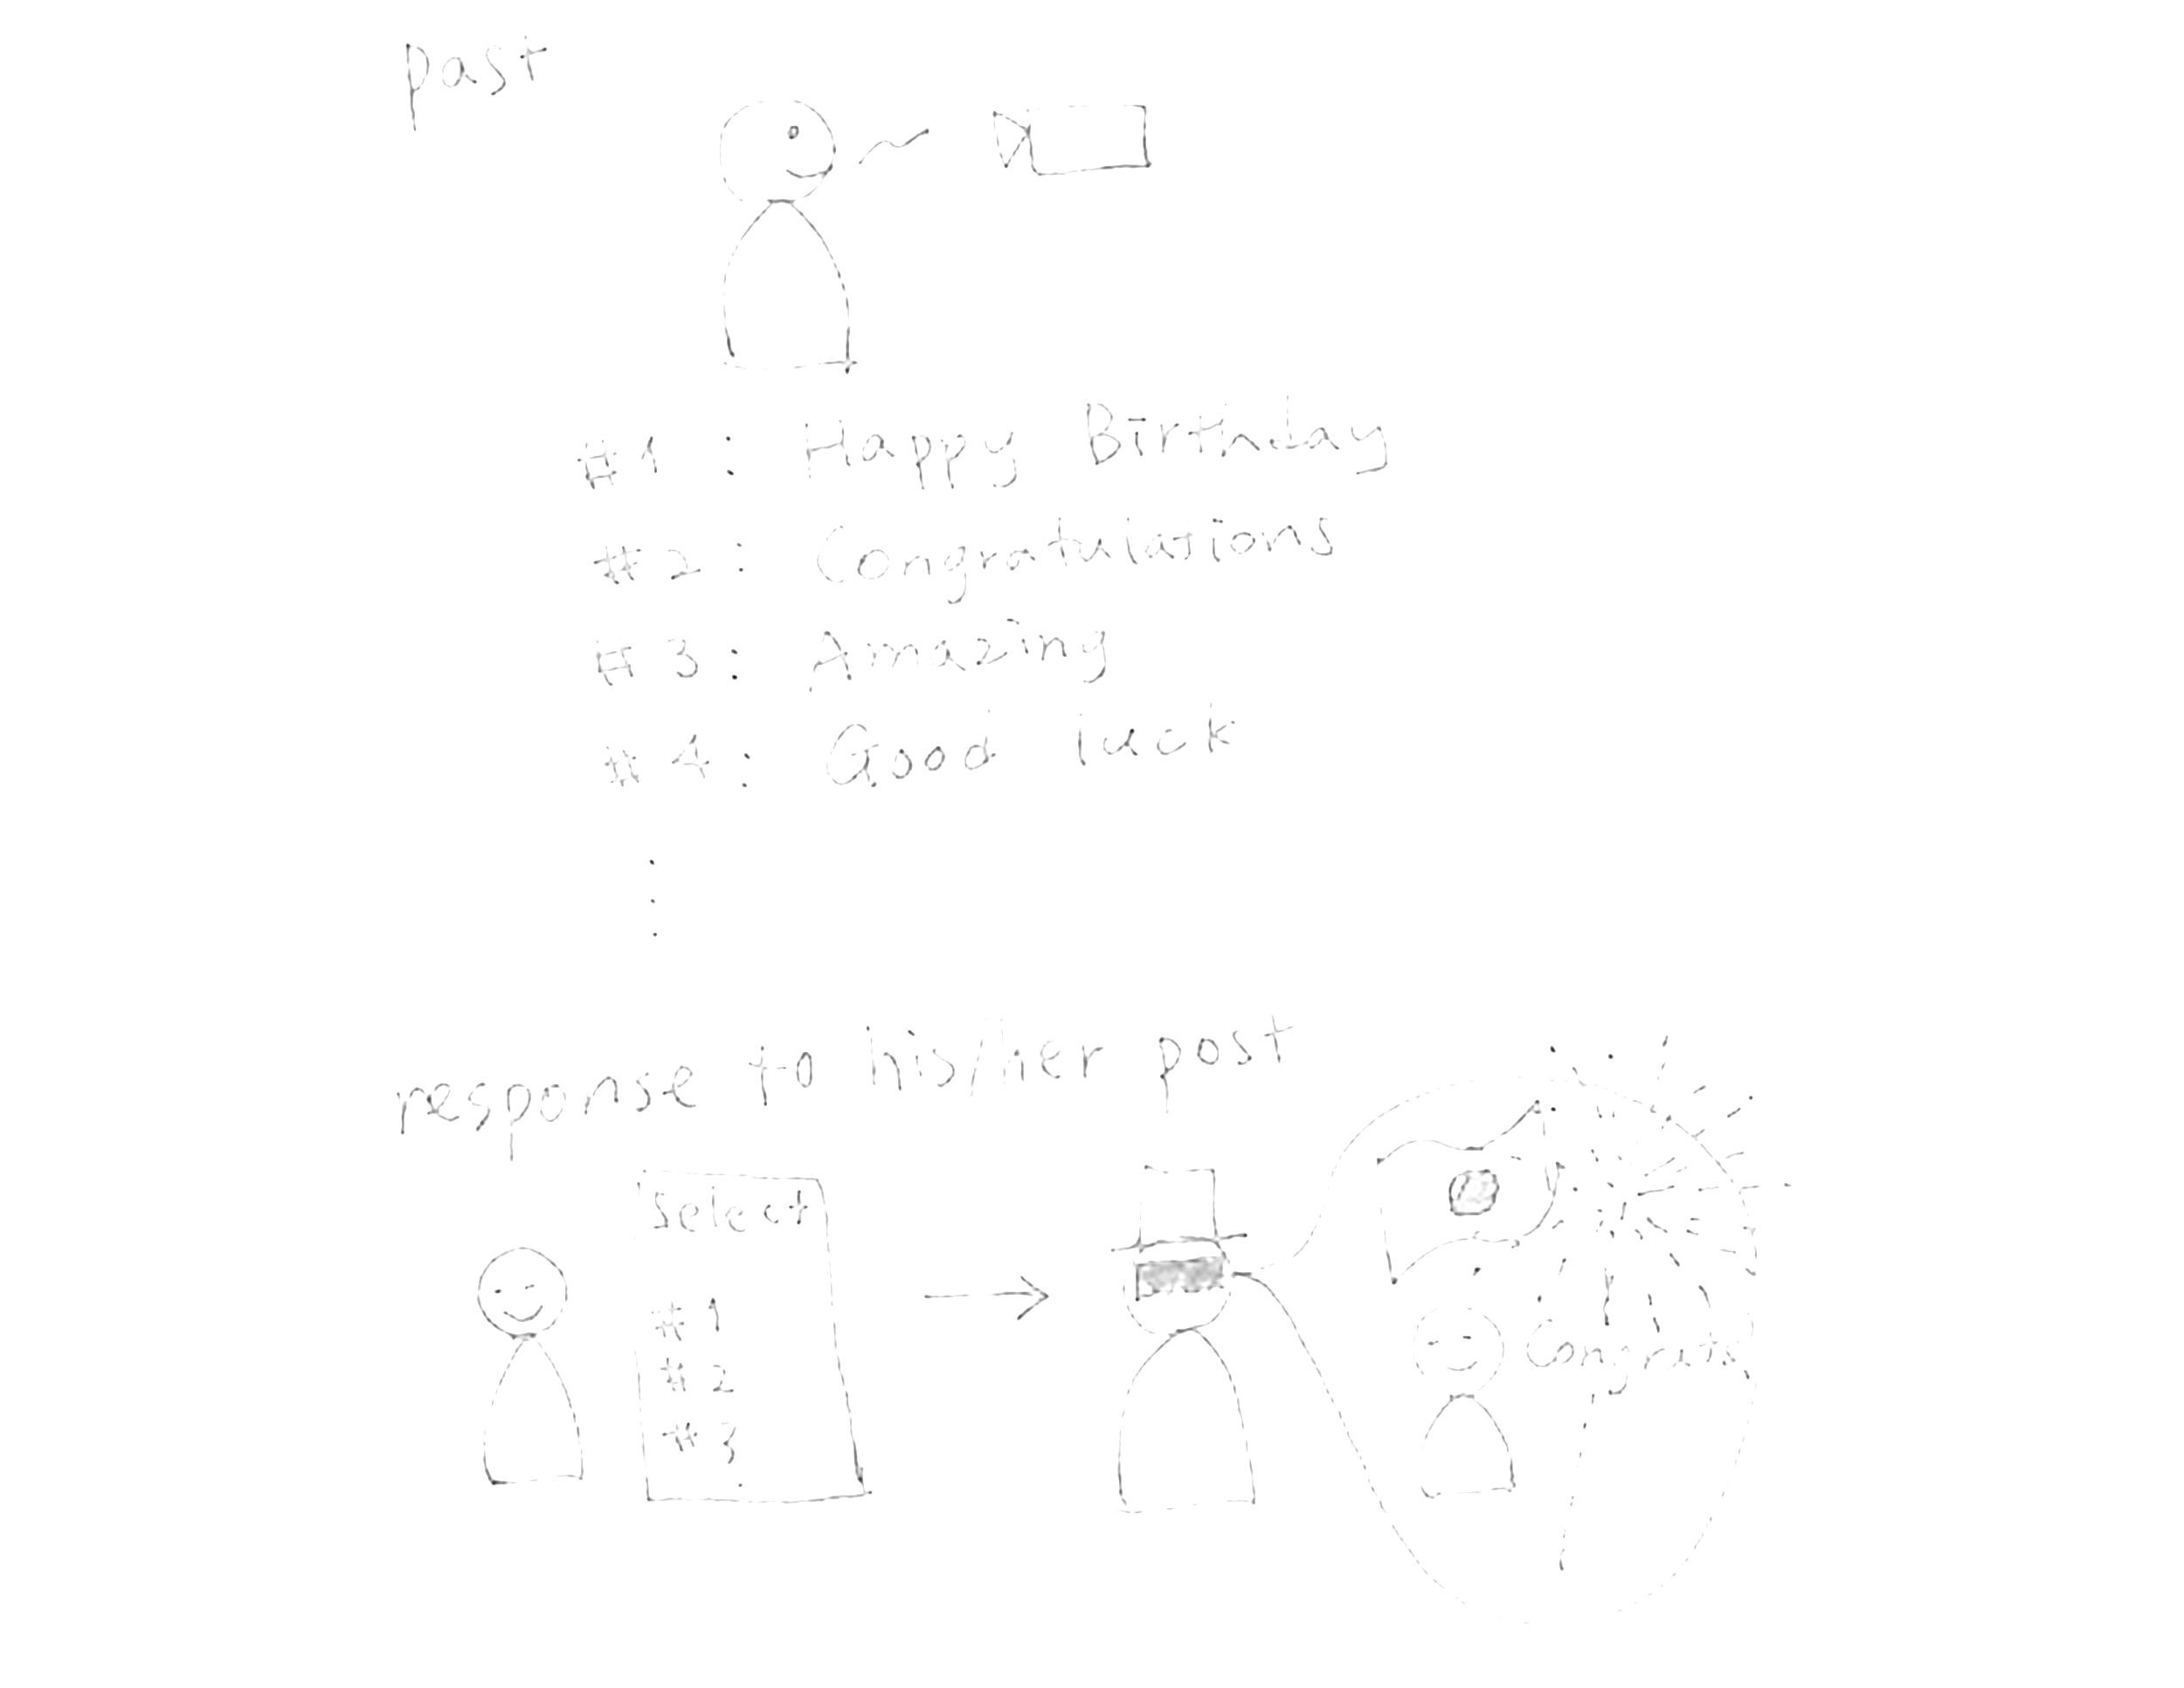 past
#1 : Happy Birthday
#2 : Congratulations
#3 : Amazing
#4 : Good luck
response to his/her post
Select
#1
#2
#3
Congrats